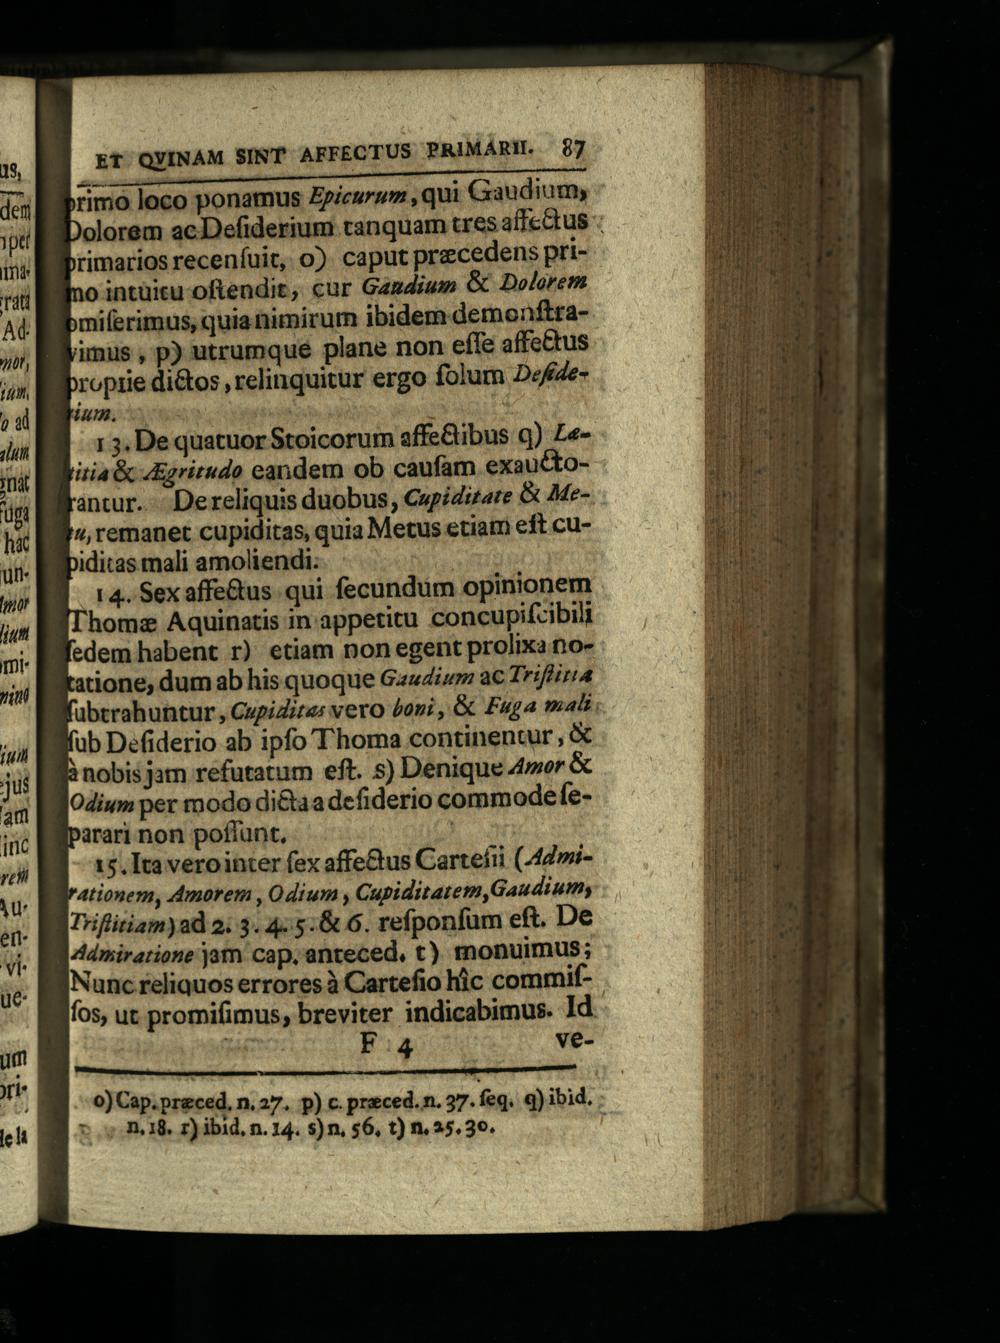 ET QVINAM SINT AFFECTUS PRIMARII. 87
primo loco ponamus Epicurum, qui Gaudium,
Dolorem ac Deſiderium tanquam tres affectus
primarios recenſuit, o) caput præcedens pri-
mo intuitu oſtendit, cur Gaudium & Dolorem
omiſerimus, quia nimirum ibidem demonſtra-
vimus, p) utrumque plane non eſſe affectus
proprie dictos, relinquitur ergo ſolum Deſide-
rium.
13. De quatuor Stoicorum affectibus q) Læ-
titia & Ægritudo eandem ob cauſam exaucto-
rantur. De reliquis duobus, Cupiditate & Me-
tu, remanet cupiditas, quia Metus etiam eſt cu-
piditas mali amoliendi.
14. Sex affectus qui ſecundum opinionem
Thomæ Aquinatis in appetitu concupiſcibili
ſedem habent r) etiam non egent prolixa no-
tatione, dum ab his quoque Gaudium ac Triſtitia
ſubtrahuntur, Cupiditas vero boni, & Fuga mali
ſub Deſiderio ab ipſo Thoma continentur, &
à nobis jam refutatum eſt. s) Denique Amor &
Odium per modo dicta a deſiderio commode ſe-
parari non poſſunt.
15. Ita vero inter ſex affectus Carteſii (Admi-
rationem, Amorem, Odium, Cupiditatem, Gaudium,
Triſtitiam) ad 2. 3. 4. 5. & 6. reſponſum eſt. De
Admiratione jam cap. anteced. t) monuimus;
Nunc reliquos errores à Carteſio hîc commiſ-
ſos, ut promiſimus, breviter indicabimus. Id
F 4 ve-
o) Cap. præced. n. 27. p) c. præced. n. 37. ſeq. q) ibid.
n. 18. r) ibid. n. 14. s) n. 56. t) n. 25. 30.